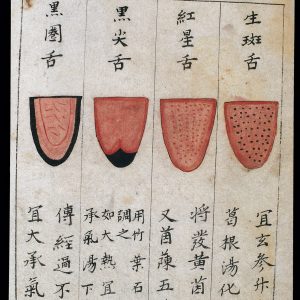 生斑舌
宜玄參升
葛根湯化
紅星舌
將發黃茵
又茵蔯五
黑尖舌
用竹葉石
調之
如大熱宜
承氣湯下
黑圈舌
傳經過不
宜大承氣